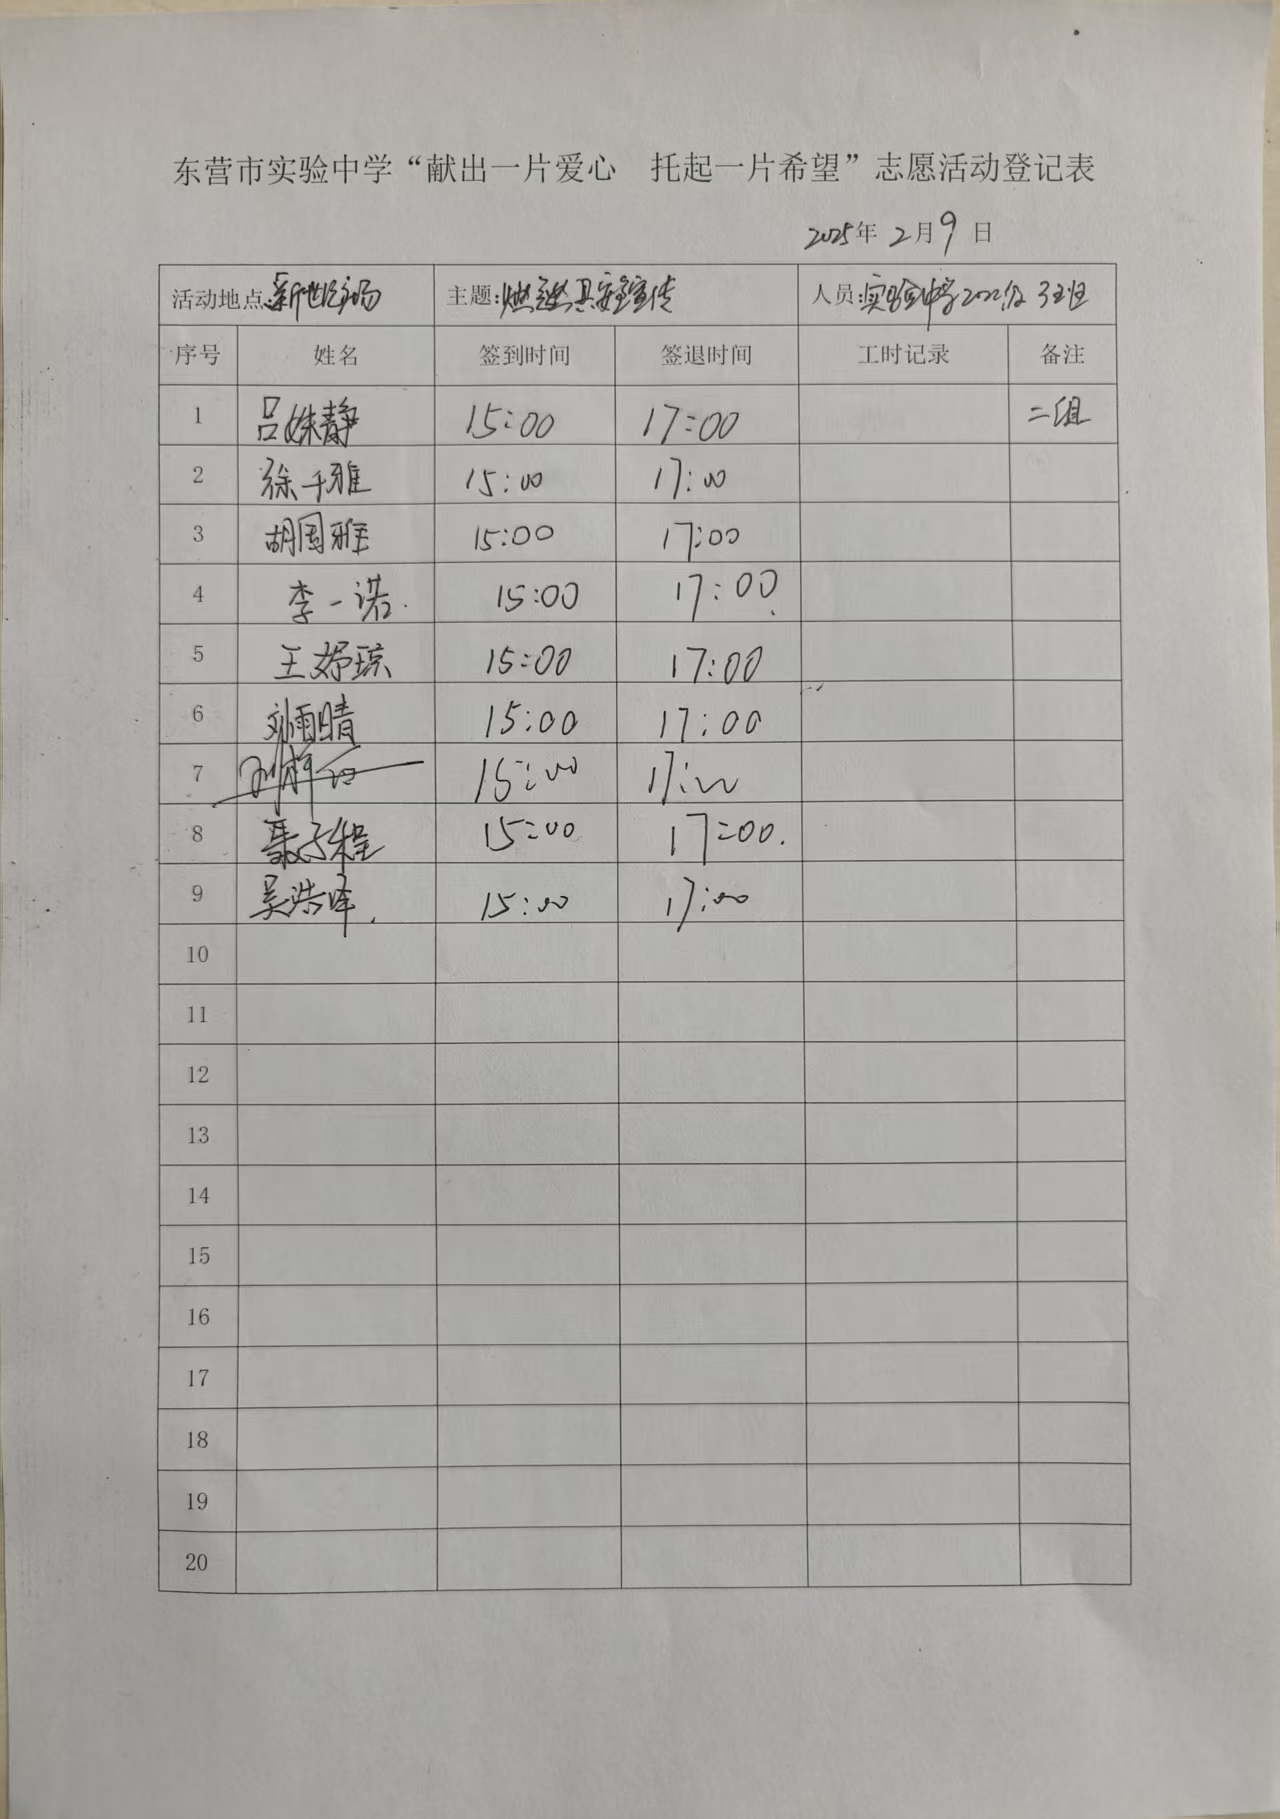 东营市实验中学“献出一片爱心 托起一片希望”志愿活动登记表
2025年 2月9日
活动地点:新世纪广场 主题:燃气安全宣传 人员:实验中学2022级3班
序号 姓名 签到时间 签退时间 工时记录 备注
1 吕姝静 15:00 17:00 二组
2 徐千雅 15:00 17:00
3 胡国雅 15:00 17:00
4 李一诺 15:00 17:00
5 王妤琼 15:00 17:00
6 刘雨晴 15:00 17:00
7 15:00 17:00
8 聂子程 15:00 17:00.
9 吴浩泽 15:00 17:00
10
11
12
13
14
15
16
17
18
19
20